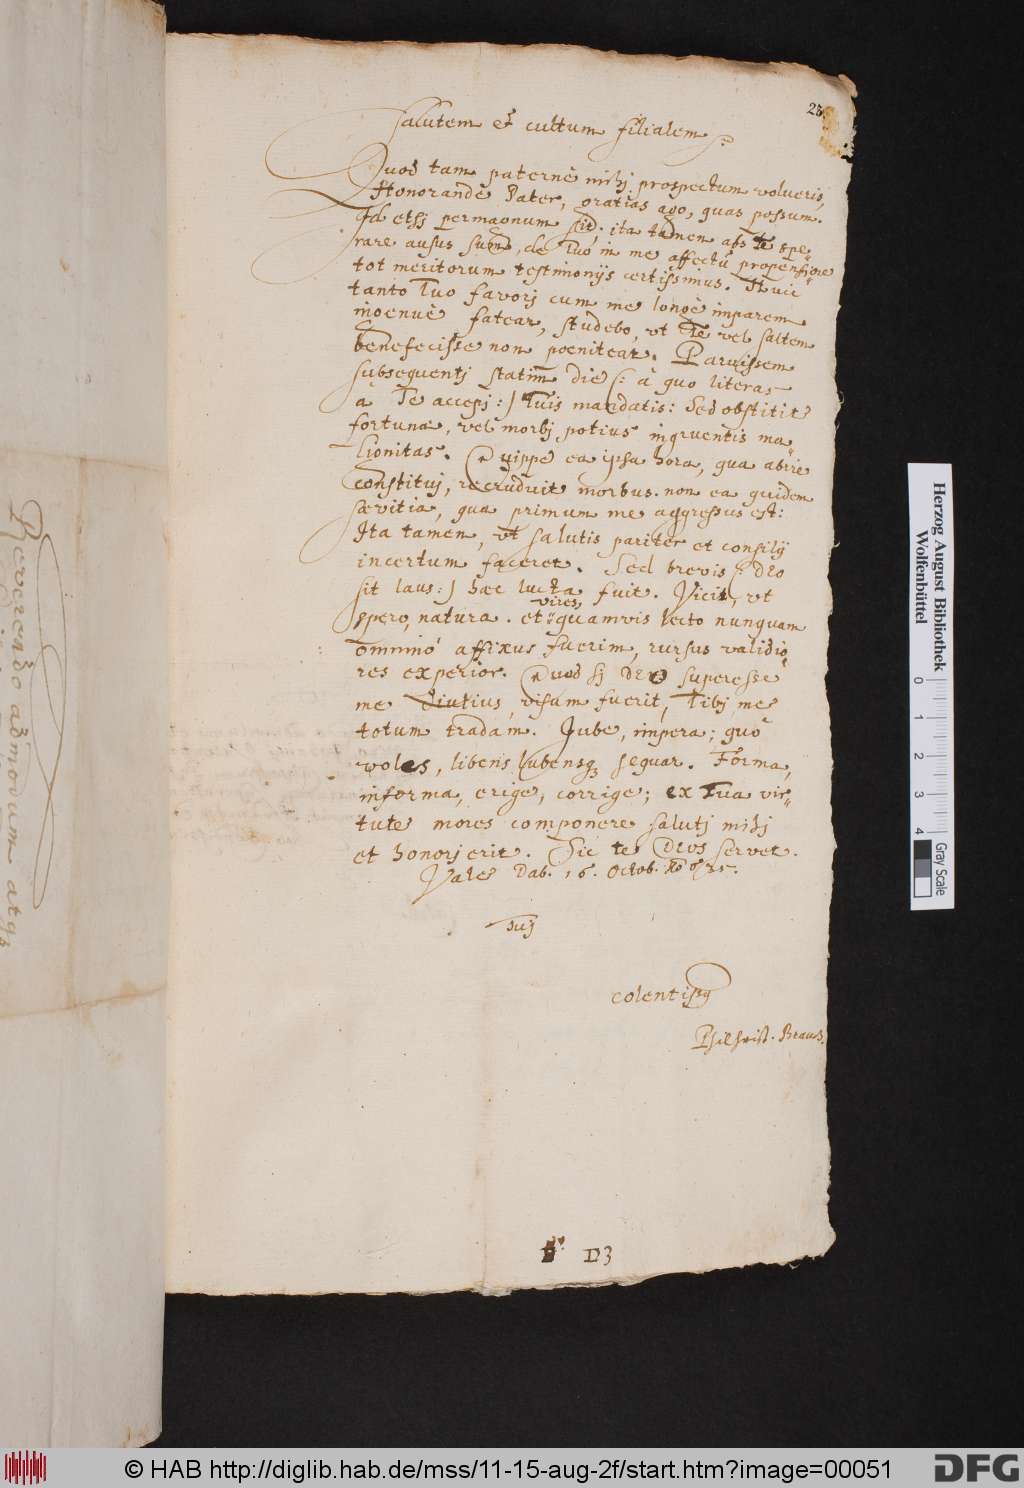 23
Salutem et cultum filialem.
Quod tam paternè mihj prospectum volueris,
Honorande Pater, gratias ago, quas possum.
Id etsj permagnum sit, ita tamen abs te spe-
rare ausus sum, de Tuo in me affectu propensione
tot meritorum testimonijs certissimus. Huic
tanto Tuo favorj cum me longè imparem
ingenuè fatear, studebo, vt Te vel saltem
benefecisse non poeniteat. Paruissem
subsequentj statim die (: à quo literas
à Te accepj :) Tuis mandatis: Sed obstitit
fortuna, vel morbj potius ingruentis ma-
lignitas. Quippe ea ipsa hora, qua abire
constituj, recruduit morbus. non ea quidem
saevitia, qua primum me aggressus est:
Ita tamen, vt salutis pariter et consilij
incertum faceret. Sed brevis (: DEO
sit laus :) haec lucta fuit. Vicit, vt
spero, natura. et vires quamvis lecto nunquam
omninò affixus fuerim, rursus validio-
res experior. Quod sj DEO superesse
me diutius visum fuerit, Tibj me
totum tradam. Jube, impera; quò
voles, libens lubensq; sequar. Forma,
informa, erige, corrige; ex Tua vir-
tute mores componere salutj mihj
et honorj erit. Sic te DEVS servet.
Vale Dab. 16. Octob.
Tuj
colentiss
Brand.
D3
Reverendo admodum atq;
Herzog August Bibliothek
Wolfenbüttel
0 1 2 3 4
Gray Scale
© HAB http://diglib.hab.de/mss/11-15-aug-2f/start.htm?image=00051
DFG